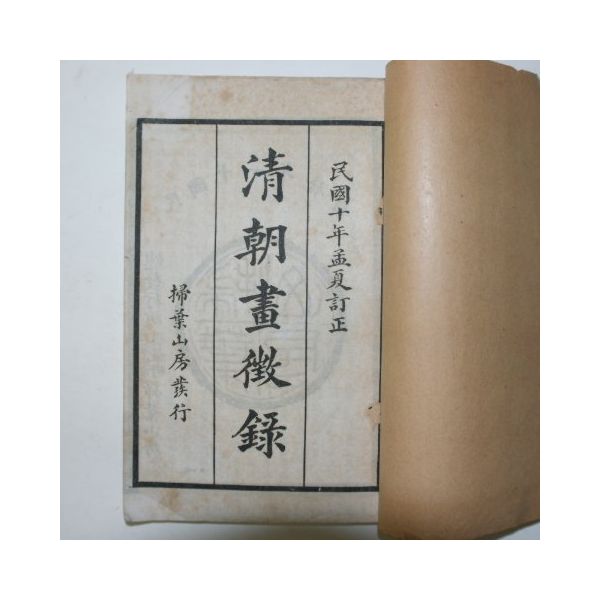 民國十年孟夏訂正
清朝畫徵錄
掃葉山房發行